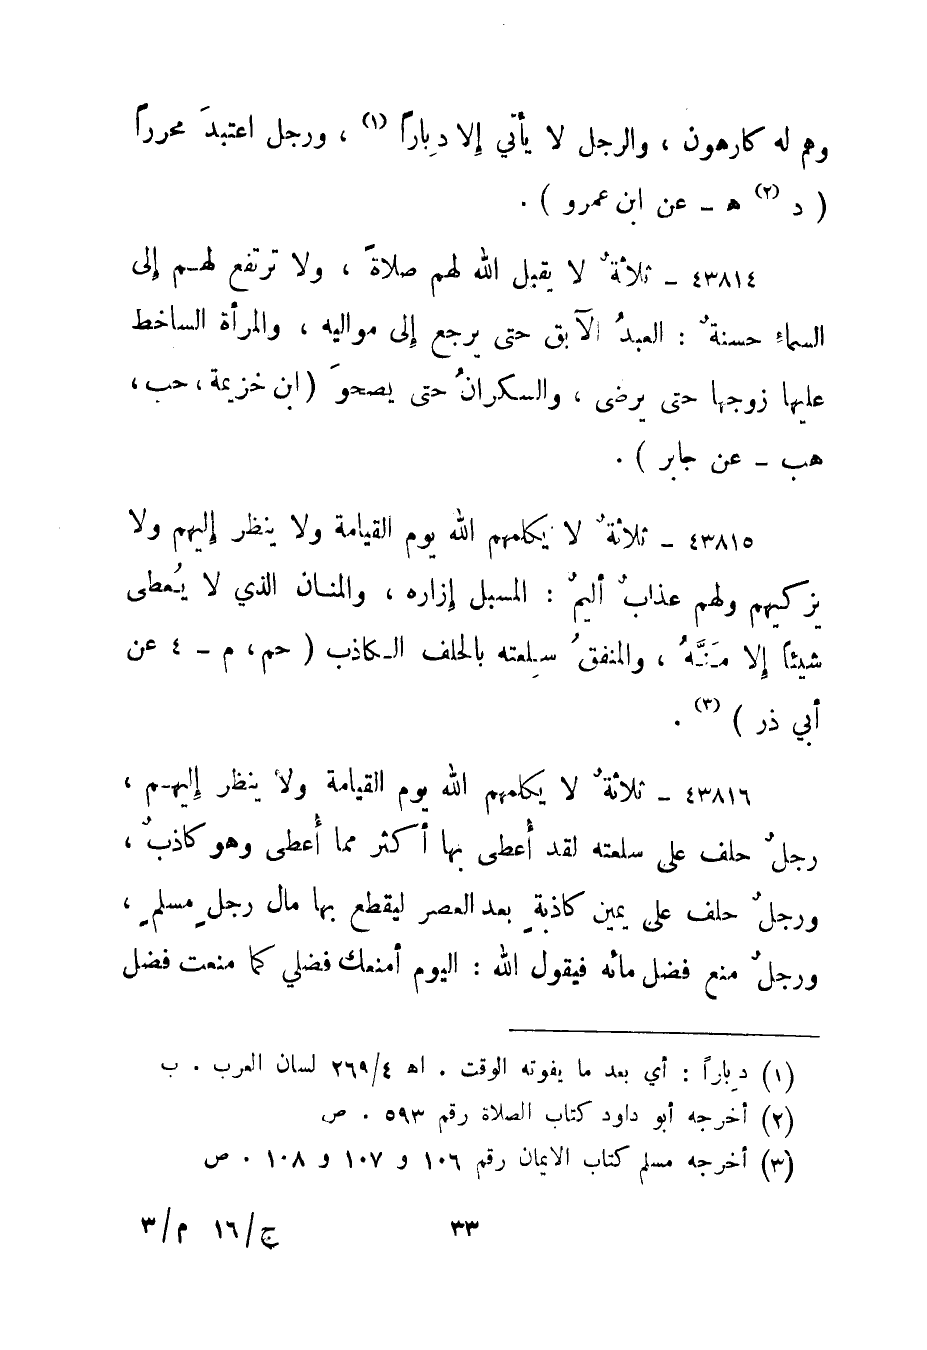 وهم له كارهون ، والرجل لا يأتي إلا دِباراً (١) ، ورجل اعتبدَ محرراً
( د (٢) ه ـ عن ابن عمرو ) .
٤٣٨١٤ ـ ثلاثةٌ لا يقبل الله لهم صلاةً ، ولا ترتفع لهم إلى
السماءِ حسنةٌ : العبدُ الآبق حتى يرجع إلى مواليه ، والمرأة الساخط
عليها زوجها حتى يرضى ، والسكرانُ حتى يصحوَ ( ابن خزيمة ، حب ،
هب ـ عن جابر ) .
٤٣٨١٥ ـ ثلاثةٌ لا يكلمهم الله يوم القيامة ولا ينظر إليهم ولا
يزكيهم ولهم عذابٌ أليمٌ : المسبل إزاره ، والمنان الذي لا يُعطى
شيئاً إلا مَنَّهُ ، والمنفقُ سِلعته بالحلف الكاذب ( حم ، م ـ ٤ عن
أبي ذر ) (٣) .
٤٣٨١٦ ـ ثلاثةٌ لا يكلمهم الله يوم القيامة ولا ينظر إليهم ،
رجلٌ حلف على سلعته لقد أُعطى بها أكثر مما أُعطى وهو كاذبٌ ،
ورجلٌ حلف على يمين كاذبةٍ بعد العصر ليقطع بها مال رجلٍ مسلمٍ ،
ورجلٌ منع فضل مائه فيقول الله : اليوم أمنعك فضلي كما منعت فضل
(١) دِباراً : أي بعد ما يفوته الوقت . اه ٢٦٩/٤ لسان العرب . ب
(٢) أخرجه أبو داود كتاب الصلاة رقم ٥٩٣ . ص
(٣) أخرجه مسلم كتاب الايمان رقم ١٠٦ و ١٠٧ و ١٠٨ . ص
٣٣ ج/١٦ م/٣